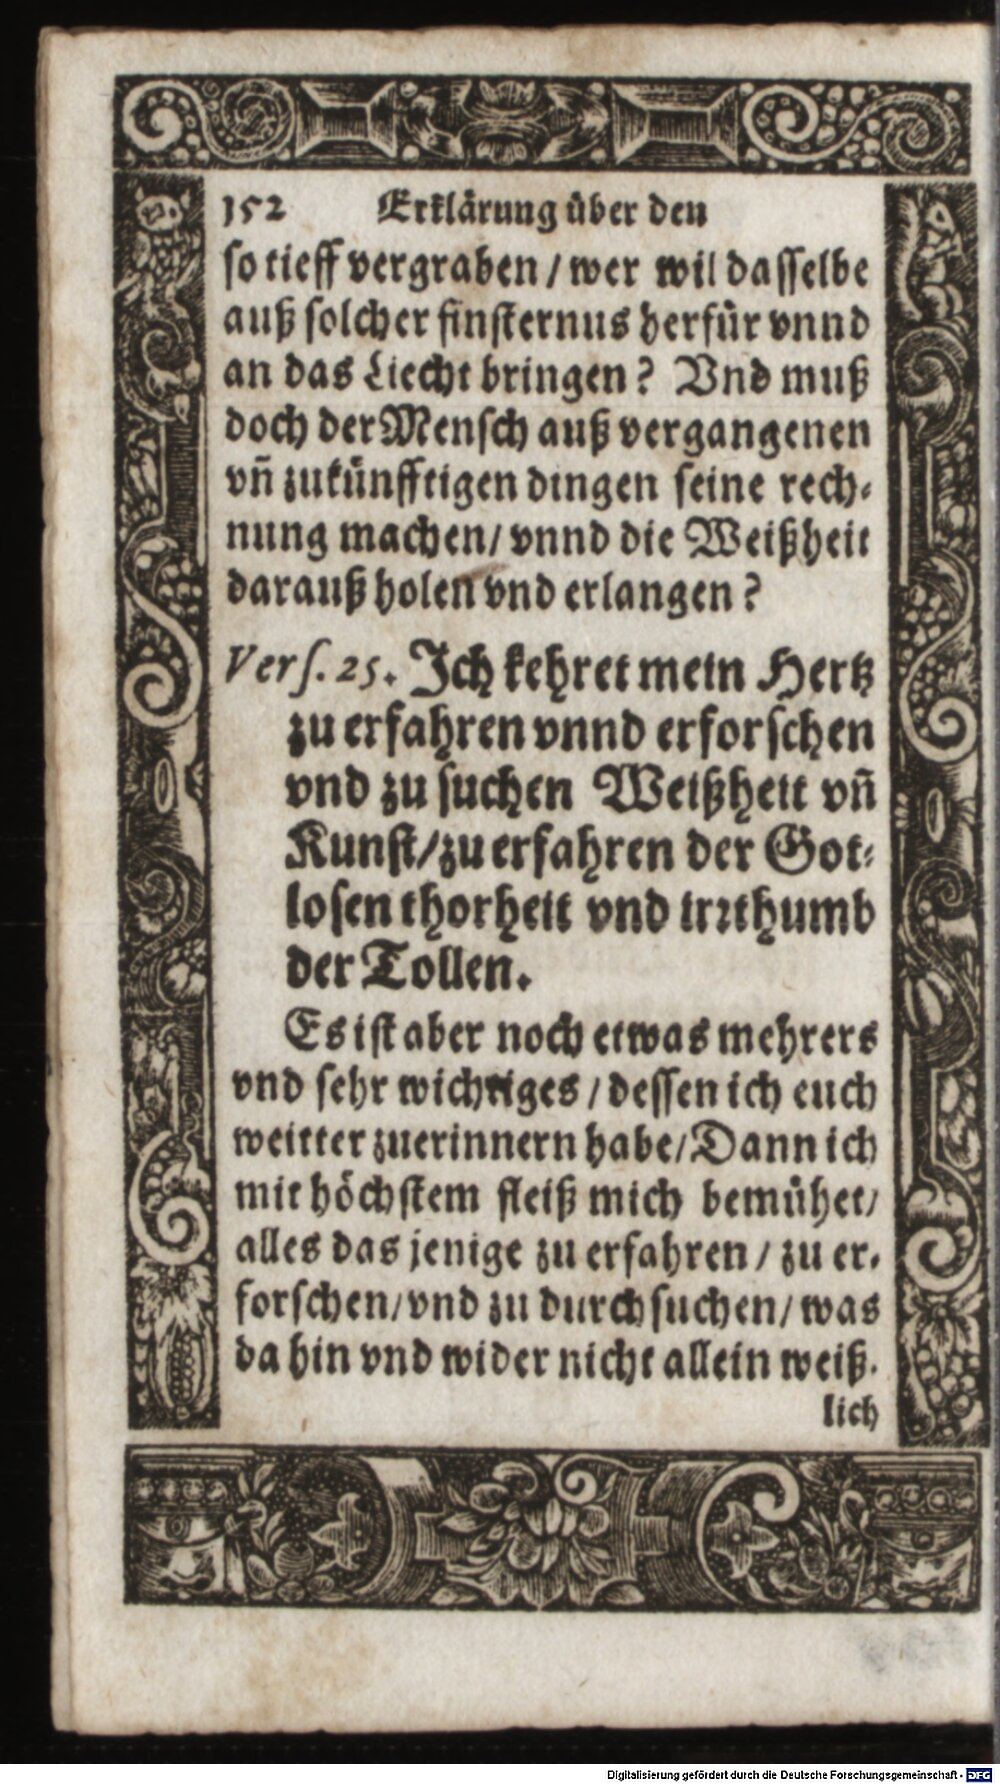 152 Erklärung über den
so tieff vergraben / wer wil dasselbe
auß solcher finsternus herfür vnnd
an das Liecht bringen? Vnd muß
doch der Mensch auß vergangenen
vñ zukünfftigen dingen seine rech-
nung machen / vnnd die Weißheit
darauß holen vnd erlangen?
Vers. 25. Ich kehret mein Hertz
zu erfahren vnnd erforschen
vnd zu suchen Weißheit vñ
Kunst / zu erfahren der Got-
losen thorheit vnd irrthumb
der Tollen.
Es ist aber noch etwas mehrers
vnd sehr wichtiges / dessen ich euch
weitter zuerinnern habe / Dann ich
mit höchstem fleiß mich bemühet /
alles das jenige zu erfahren / zu er-
forschen / vnd zu durchsuchen / was
da hin vnd wider nicht allein weiß-
lich
Digitalisierung gefördert durch die Deutsche Forschungsgemeinschaft - DFG